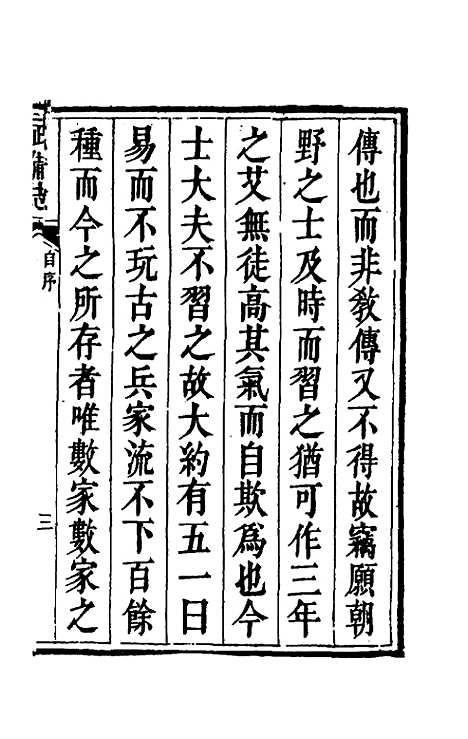 傳也而非教傳又不得故竊願朝
野之士及時而習之猶可作三年
之艾無徒高其氣而自欺爲也今
士大夫不習之故大約有五一曰
易而不玩古之兵家流不下百餘
種而今之所存者唯數家數家之
武備志
自序
三